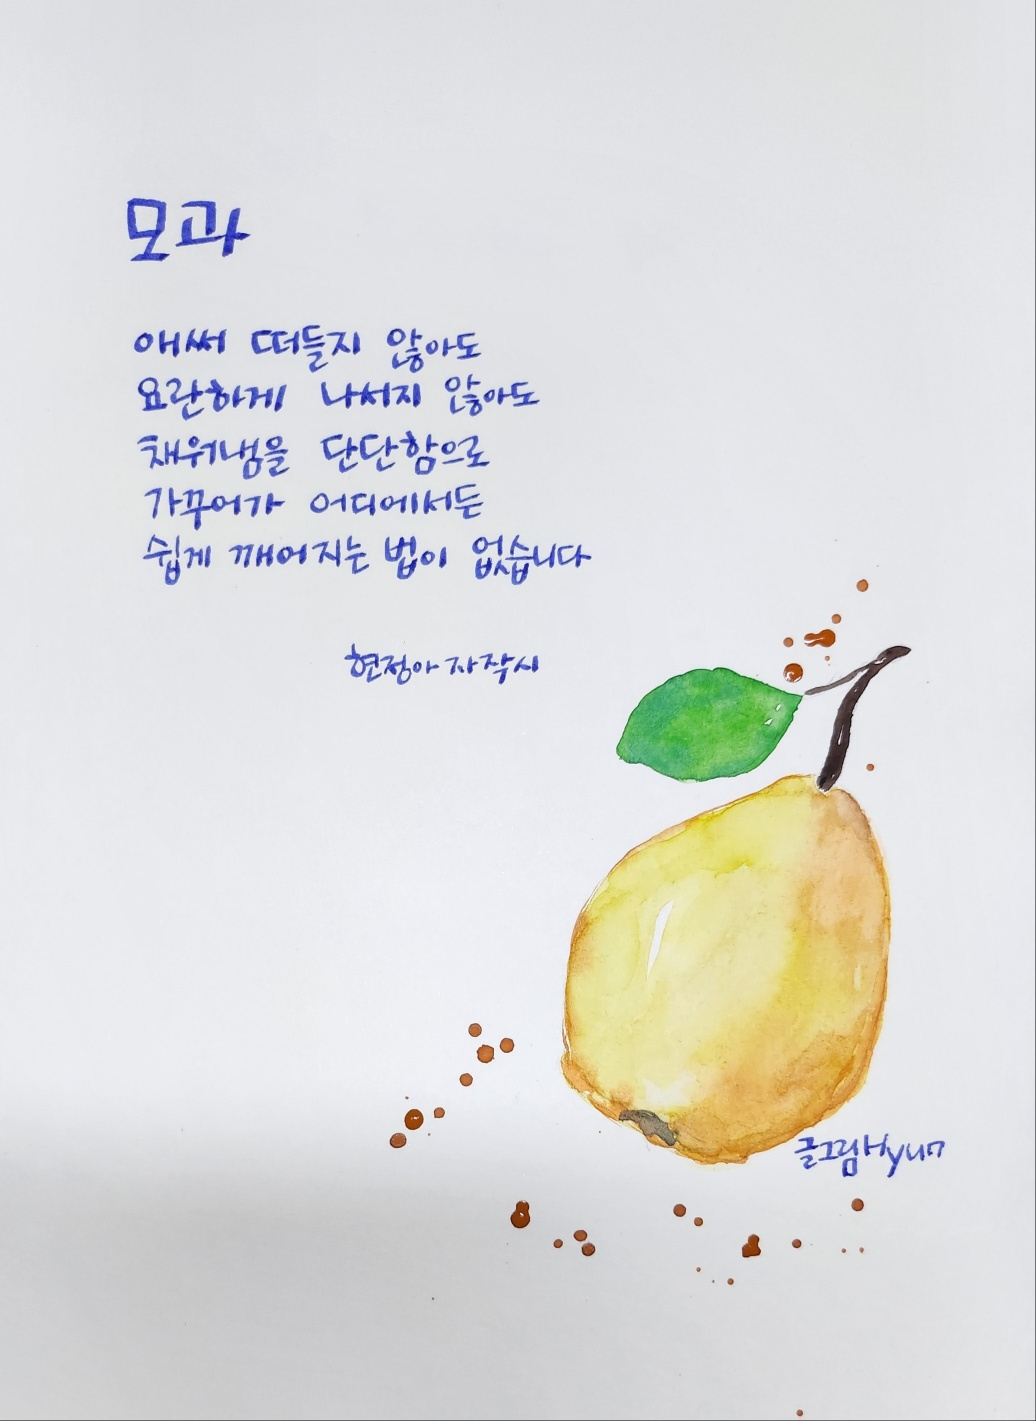 모과
애써 떠들지 않아도
요란하게 나서지 않아도
채워냄을 단단함으로
가꾸어가 어디에서든
쉽게 깨어지는 법이 없습니다
현정아 자작시
글그림 Hyun